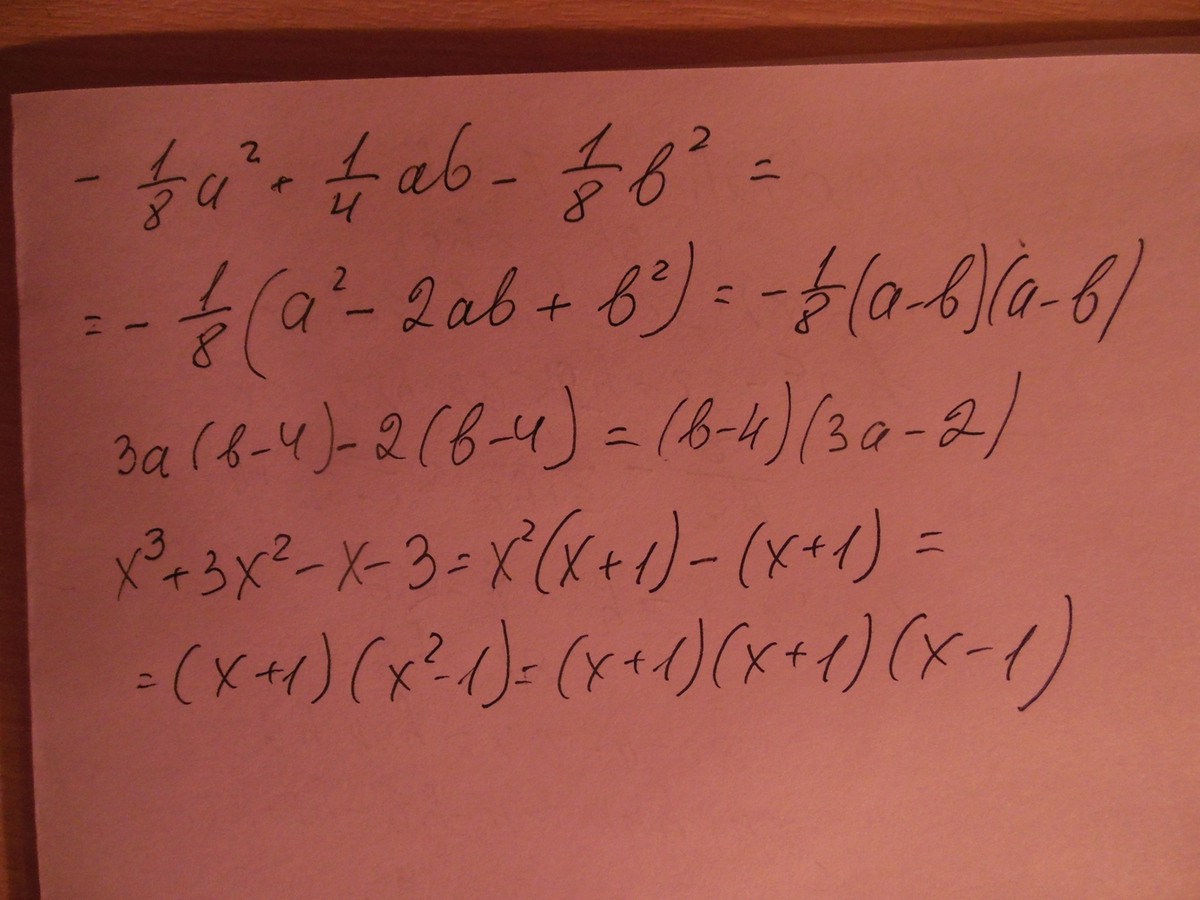 - 1/8 a² + 1/4 ab - 1/8 b² =
= - 1/8 (a² - 2ab + b²) = - 1/8 (a-b)(a-b)
3a(b-4)-2(b-4) = (b-4)(3a-2)
x³+3x²-x-3=x²(x+1)-(x+1) =
=(x+1)(x²-1)=(x+1)(x+1)(x-1)